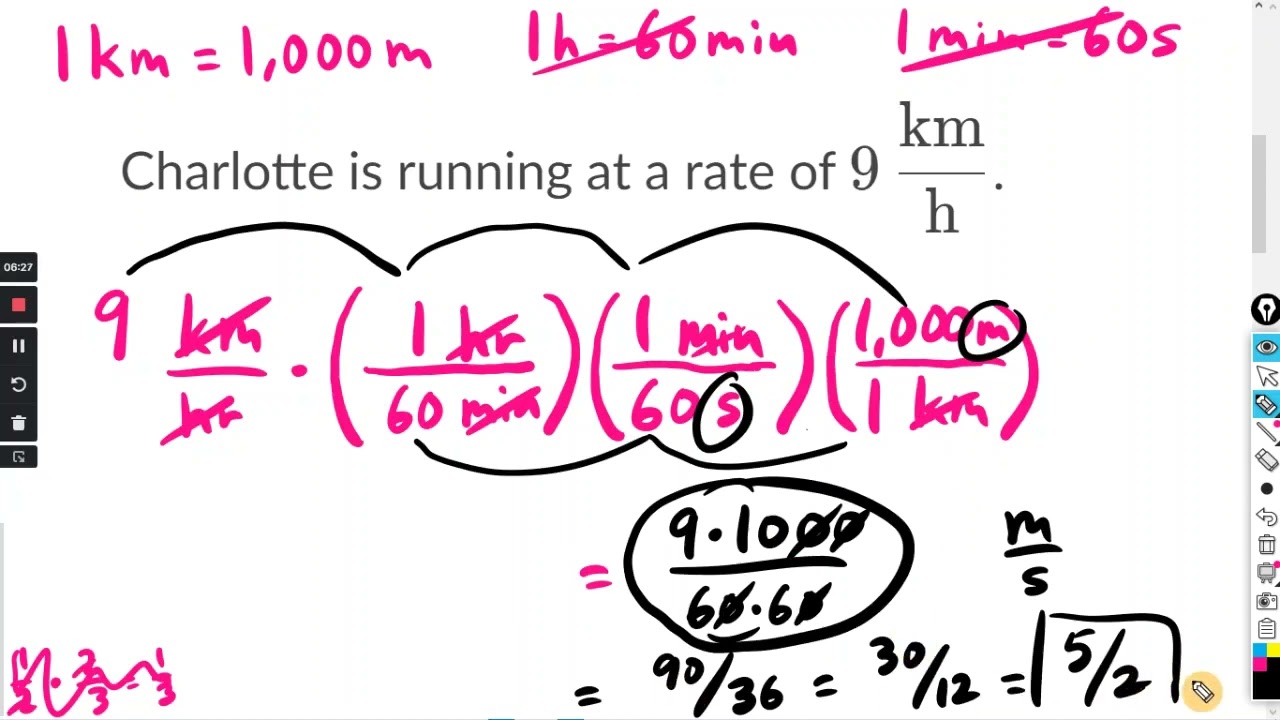 1 km = 1,000 m 1 h = 60 min 1 min = 60 s
Charlotte is running at a rate of 9 km/h.
9 km/hr · (1 hr/60 min)(1 min/60 s)(1,000 m/1 km)
= 9·1000/60·60 m/s
= 90/36 = 30/12 = 5/2
06:27